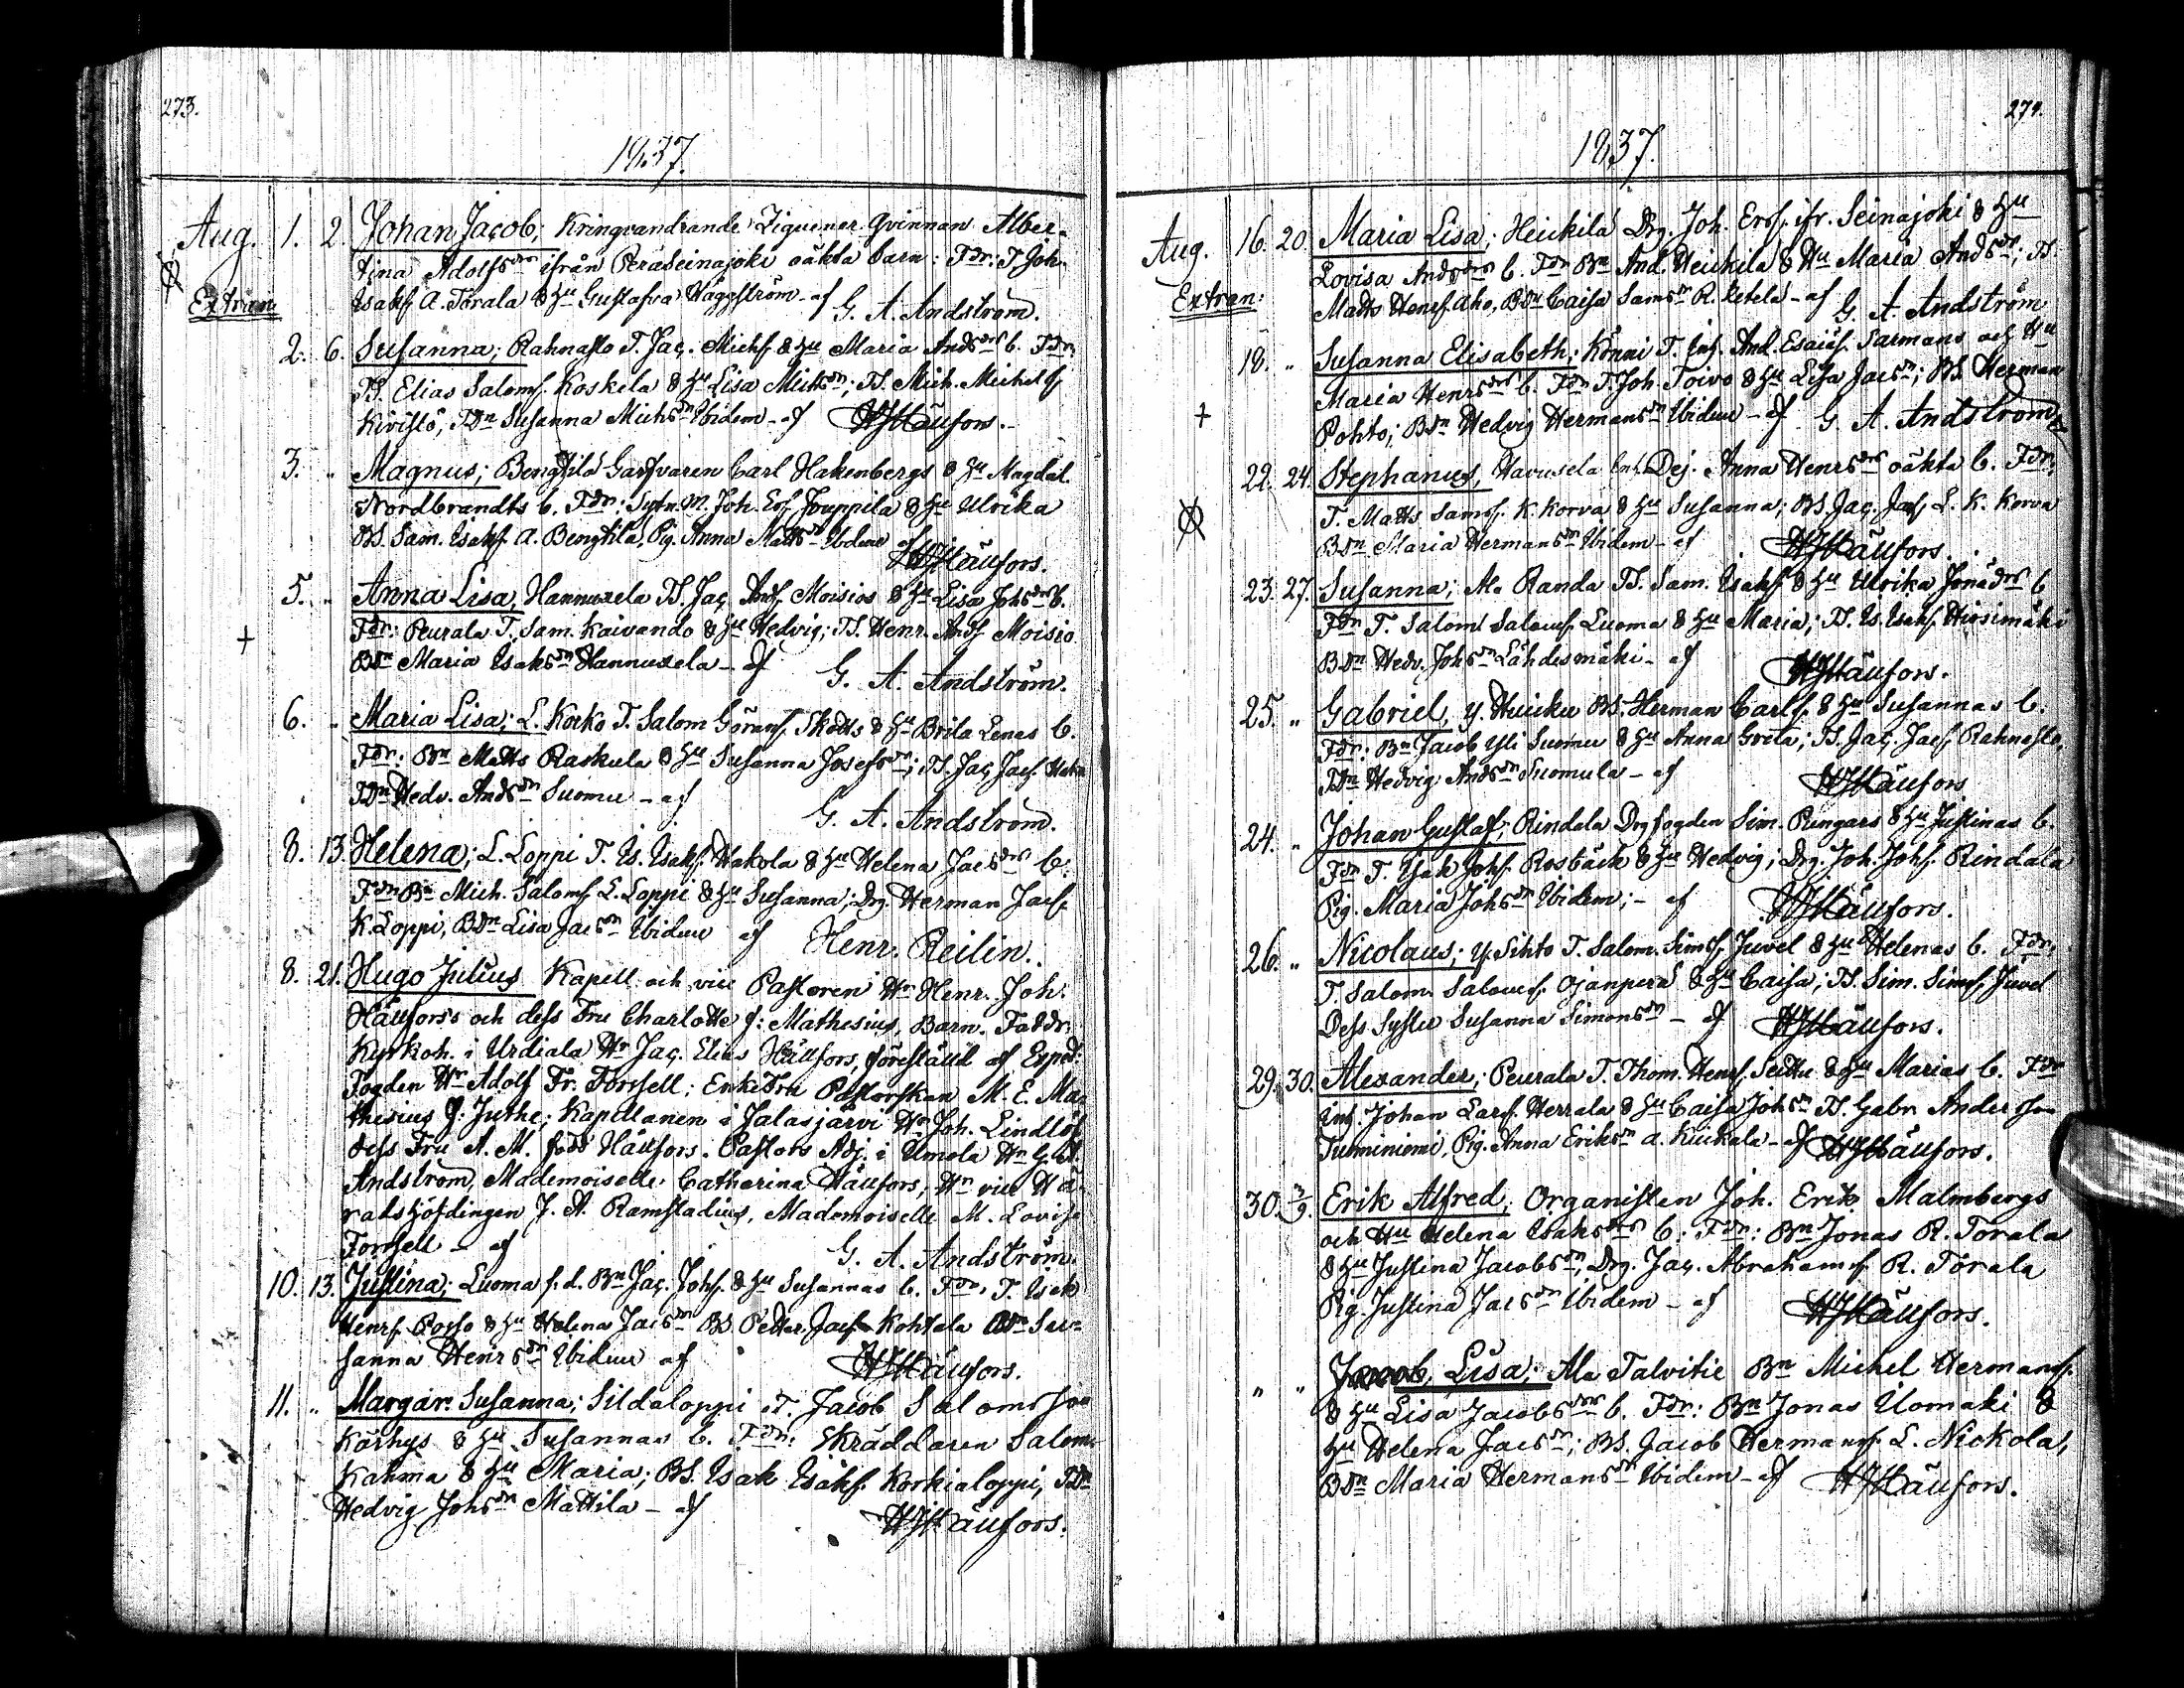 273.
1837.
Aug. 1. 2. Johan Jacob; Kringvandrande Ziguener qvinnan Alber-
tina Adolfsdrs ifrån Peräseinajoki oäkta barn: Fdr: T. Joh.
Extran Isaksf. A. Torala & Hu Gustafva Häggström - af G. A. Andström.
2. 6. Susanna; Rahnasto T. Jac. Michsf. & Hu Maria Andsdrs b. Fdr:
TS. Elias Salomsf. Koskela & Hu Lisa Michsdr; TS. Mich. Michelsf.
Kivistö, TDr Susanna Michsdr Ibidem - af HJHällfors.
3. " Magnus; Bengtilä Garfvaren Carl Hakenbergs & Hu Magdal.
Nordbrandts b. Fdr: Sytn. M. Joh. Ersf. Jouppila & Hu Ulrika
BS. Sam. Isaksf. A. Bengtilä, Pig. Anna Mattsdr Ibidem af
HJHällfors.
5. " Anna Lisa, Hannuxela TS. Jac. Andsf. Moisios & Hu Lisa Johsdrs b.
Fdr: Peurala T. Sam. Kaivando & Hu Hedvig; TS. Henr. Andsf. Moisio
+ BDr Maria Isaksdr Hannuxela - af G. A. Andström.
6. " Maria Lisa; L. Korko T. Salom. Göransf. Skotts & Hu Brita Lenas b.
Fdr: Bn Matts Raskula & Hu Susanna Josefsdr; TS. Jac. Jacsf.
TDr Hedv. Andsdr Suomu - af
G. A. Andström.
8. 13. Helena; L. Loppi T. Is. Isaksf. Hakola & Hu Helena Jacsdrs b.
Fdr Bn Mich. Salomsf. L. Loppi & Hu Susanna; Drg. Herman Jacsf.
K. Loppi, BDr Lisa Jacsdr Ibidem af Henr. Reilin.
8. 21. Hugo Julius Kapell. och vice Pastoren Hr Henr. Joh.
Hällfors's och dess Fru Charlotte f: Mathesius, Barn. Faddr:
Kyrkoh. i Urdiala Hr Jac. Elias Hällfors, föreställd af Exped:
Fogden Hr Adolf Fr. Forssell; EnkeFru Pastorskan M. E. Ma-
thesius f: Juthe; Kapellanen i Jalasjärvi Hr Joh. Lindlöf
dess Fru A. M. född Hällfors. Pastors Adj. i Ilmola Hr G. A.
Andström, Mademoiselle Catharina Hällfors, Hr vice Hä-
radshöfdingen J. A. Ramstadius, Mademoiselle M. Lovisa
Forssell - af G. A. Andström.
10. 13. Justina; Luoma f. d. Bn Jac. Johsf. & Hu Susannas b. Fdr. T. Isak
Henrsf. Porso & Hu Helena Jacsdr BS. Petter Jacsf. Kohtala BDr Su-
sanna Henrsdr Ibidem af HJHällfors.
11. " Margar. Susanna; Sildaloppi T. Jacob Salomsson
Karhys & Hu Susannas b. Fdr: Skräddaren Salom.
Kahma & Hu Maria; BS. Isak Isaksf. Korkialoppi, TDr
Hedvig Johsdr Mattila - af HJHällfors.
274.
1837.
Aug. 16. 20. Maria Lisa; Heickilä Drg. Joh. Ersf. ifr. Seinajoki & Hu
Lovisa Andsdrs b. Fdr Bn And. Heickilä & Hu Maria Andsdr; TS.
Extran: Matts Henrsf. Aho, BDr Caisa Samsdr R. Ketelä - af G. A. Andström
18. " Susanna Elisabeth; Könni T. Inh. And. Esaiæsf. Sarmans och Hu
Maria Henrsdrs b. Fdr T. Joh. Toivo & Hu Lisa Jacsdr; BS. Herman
+ Pohto; BDr Hedvig Hermansdr Ibidem - af G. A. Andström
22. 24. Stephanus, Havusela Inh. Dej. Anna Henrsdrs oäkta b. Fdr;
T. Matts Samsf. K. Korva & Hu Susanna; BS. Jac. Jacsf. L. K. Korva
BDr Maria Hermansdr Ibidem - af HJHällfors.
23. 27. Susanna; Ala Randa TS. Sam. Isaksf. & Hu Ulrika Jonædrs b
Fdr T. Salom. Salomsf. Luoma & Hu Maria; TS. Is. Isaksf. Hirsimäki
BDr Hedv. Johsdr Lähdesmäki - af HJHällfors.
25. " Gabriel, y. Huicku BS. Herman Carlsf. & Hu Susannas b.
Fdr: Bn Jacob Yli Suomu & Hu Anna Greta; TS. Jac. Jacsf. Rahnasto,
TDr Hedvig Andsdr Suomula - af HJHällfors
24. " Johan Gustaf; Rindala Drgfogden Sim. Rengars & Hu Justinas b.
Fdr T. Isak Johsf. Rosbäck & Hu Hedvig; Drg. Joh. Johsf. Rindala
Pig. Maria Johsdr Ibidem; - af HJHällfors.
26. " Nicolaus; y. Sihto T. Salom. Simsf. Juvel & Hu Helenas b. Fdr,
T. Salom. Salomsf. Ojanperä & Hu Caisa; TS. Sim. Simsf. Juvel
Dess Syster Susanna Simonsdr - af HJHällfors.
29. 30. Alexander; Peurala T. Thom. Henrsf. Seittu & Hu Marias b. Fdr
Inh. Johan Larsf. Herrala & Hu Caisa Johsdr TS. Gabr. Andersson
Tuminiemi, Pig. Anna Eriksdr A. Kuickala - af HJHällfors.
30. 3/9. Erik Alfred; Organisten Joh. Erik Malmbergs
och Hu Helena Isaksdrs b: Fdr: Bn Jonas R. Torala
& Hu Justina Jacobsdr; Drg. Jac. Abrahamsf. R. Torala
Pig. Justina Jacsdr Ibidem - af HJHällfors.
" " Lisa; Ala Talvitie Bn Michel Hermansf.
& Hu Lisa Jacobsdrs b. Fdr: Bn Jonas Ilomäki &
Hu Helena Jacsdr; BS. Jacob Hermansf. L. Nickola,
BDr Maria Hermansdr Ibidem - af HJHällfors.